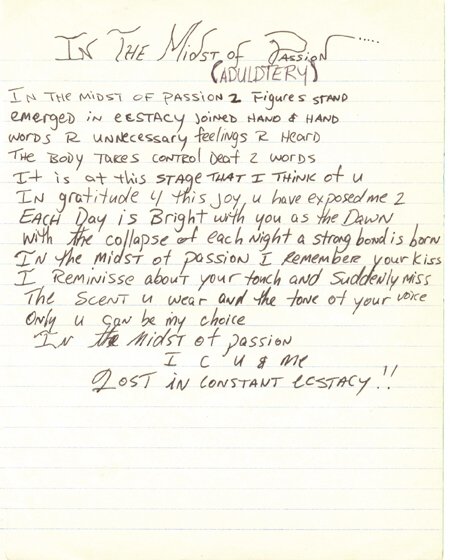 IN THE MIDST OF PASSION .....
(ADULDTERY)
IN THE MIDST OF PASSION 2 Figures STAND
emerged in EESTACY JOINED HAND & HAND
WORDS R UNNECESSARY feelings R HEARD
THE BODY TAKES CONTROL Deaf 2 WORDS
It is at this STAGE THAT I THINK of U
IN gratitude 4 this joy, u have exposed me 2
EACH Day is BRight with you as the DAWN
With the collapse of each Night a strong bond is born
IN the midst of passion I Remember your Kiss
I REMINISSE about your touch and Suddenly miss
The SCENT u wear and the tone of your voice
Only u can be my choice
IN the midst of passion
I C U & Me
LOST IN CONSTANT ECSTACY!!